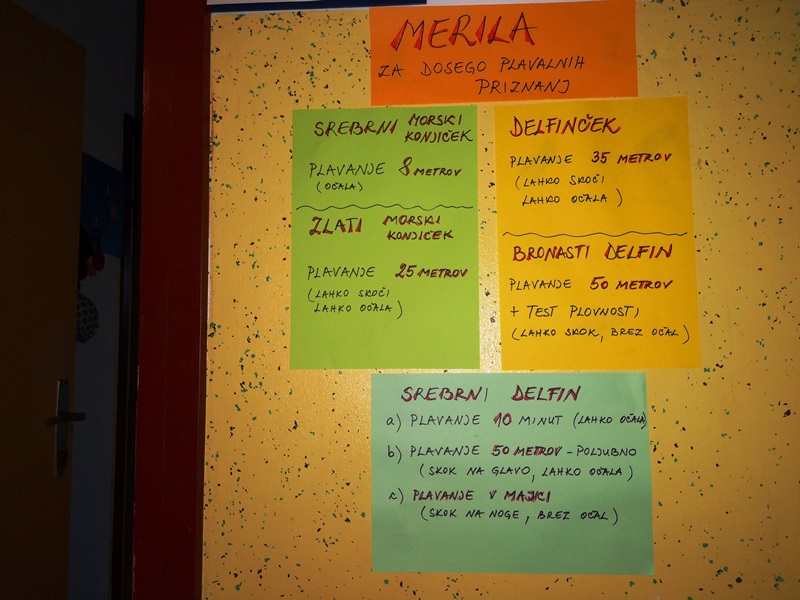 MERILA
ZA DOSEGO PLAVALNIH
PRIZNANJ
SREBRNI MORSKI
KONJIČEK
PLAVANJE 8 METROV
(OČALA)
ZLATI MORSKI
KONJIČEK
PLAVANJE 25 METROV
(LAHKO SKOČI
LAHKO OČALA)
DELFINČEK
PLAVANJE 35 METROV
(LAHKO SKOČI
LAHKO OČALA)
BRONASTI DELFIN
PLAVANJE 50 METROV
+ TEST PLOVNOSTI
(LAHKO SKOK, BREZ OČAL)
SREBRNI DELFIN
a) PLAVANJE 10 MINUT (LAHKO OČALA)
b) PLAVANJE 50 METROV - POLJUBNO
(SKOK NA GLAVO, LAHKO OČALA)
c) PLAVANJE V MAJICI
(SKOK NA NOGE, BREZ OČAL)